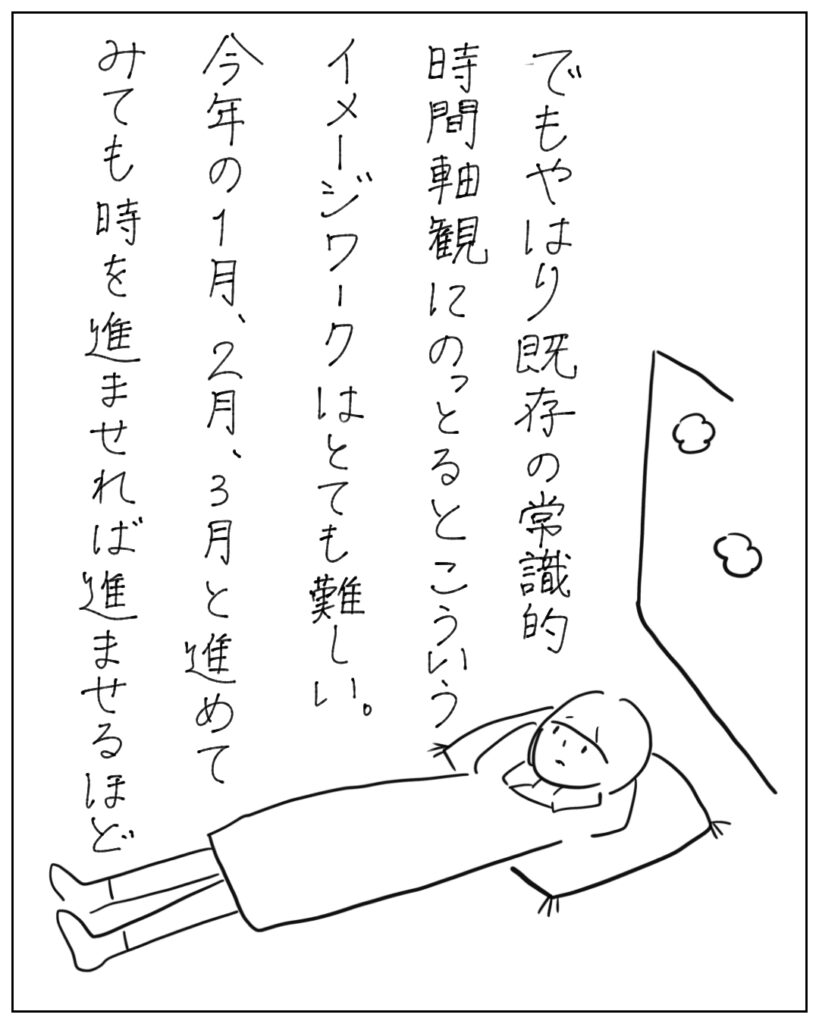 でもやはり既存の常識的
時間軸観にのっとるとこういう
イメージワークはとても難しい。
今年の1月、2月、3月と進めて
みても時を進ませれば進ませるほど